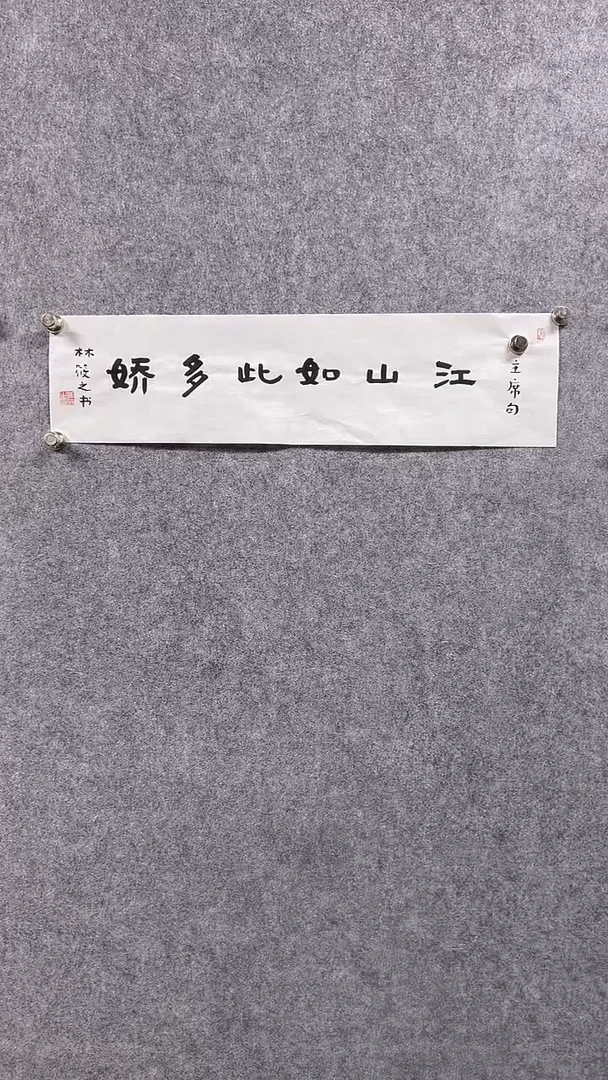 主席句
江山如此多娇
林筱之书